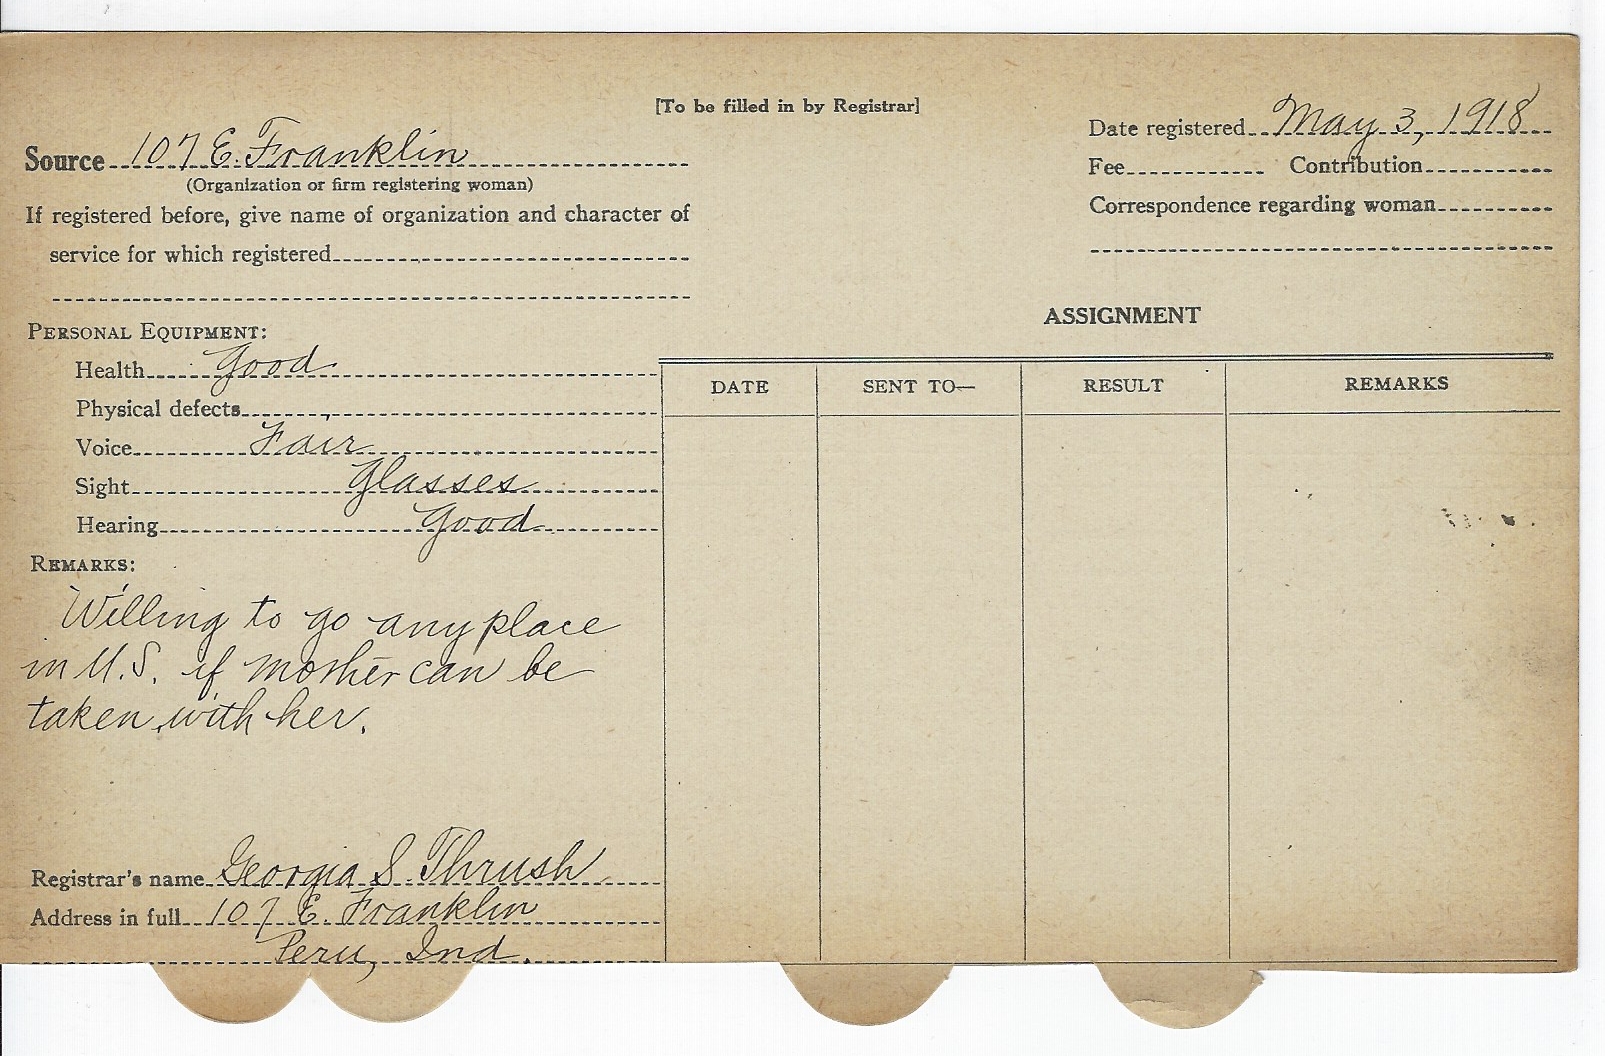 [To be filled in by Registrar]
Source 107 E. Franklin
(Organization or firm registering woman)
If registered before, give name of organization and character of
service for which registered
Date registered May 3, 1918
Fee Contribution
Correspondence regarding woman
PERSONAL EQUIPMENT:
Health Good
Physical defects
Voice Fair
Sight Glasses
Hearing Good
REMARKS:
Willing to go any place
in U.S. if mother can be
taken with her.
Registrar's name Georgia S. Thrush
Address in full 107 E. Franklin
Peru, Ind.
ASSIGNMENT
DATE SENT TO— RESULT REMARKS